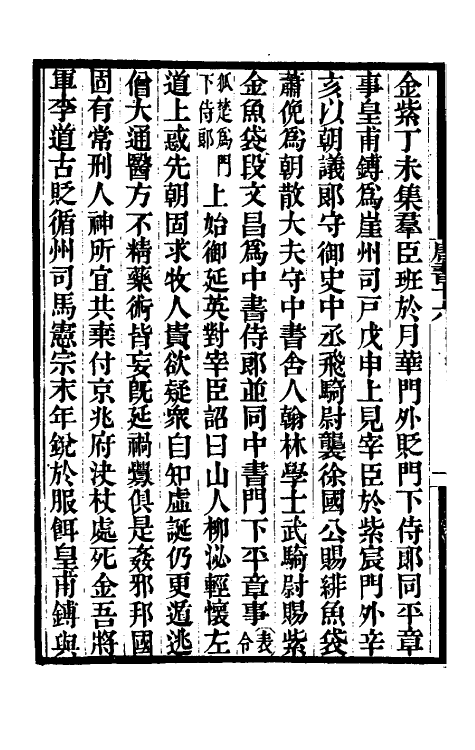 金紫丁未集羣臣班於月華門外貶門下侍郎同平章
事皇甫鎛爲崖州司戶戊申上見宰臣於紫宸門外辛
亥以朝議郎守御史中丞飛騎尉襲徐國公賜緋魚袋
蕭俛爲朝散大夫守中書舍人翰林學士武騎尉賜紫
金魚袋段文昌爲中書侍郎並同中書門下平章事表令
狐楚爲門下侍郎上始御延英對宰臣詔曰山人柳泌輕懷左
道上惑先朝固求牧人貴欲疑衆自知虛誕仍更遁逃
僧大通醫方不精藥術皆妄旣延禍釁俱是姦邪邦國
固有常刑人神所宜共棄付京兆府決杖處死金吾將
軍李道古貶循州司馬憲宗末年銳於服餌皇甫鎛與